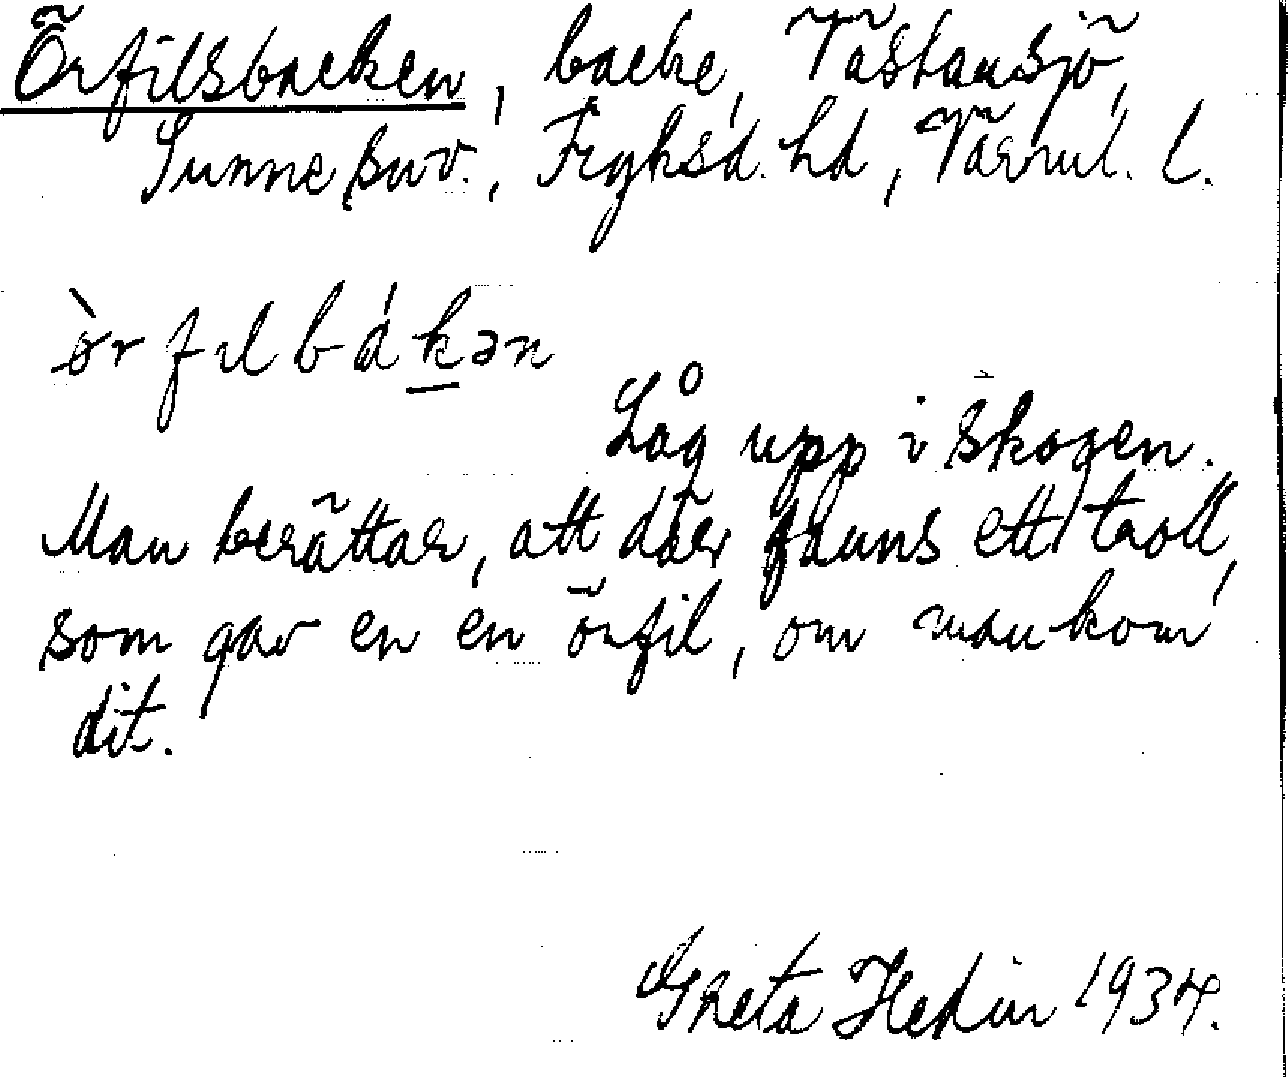 Örfilsbacken, backe, Västansjö,
Sunne snv., Fryksd. hd, Värml. l.
ø̀rfilbákən
Låg upp i skogen.
Man berättar, att där fanns ett troll,
som gav en en örfil, om man kom
dit.
Greta Hedin 1934.